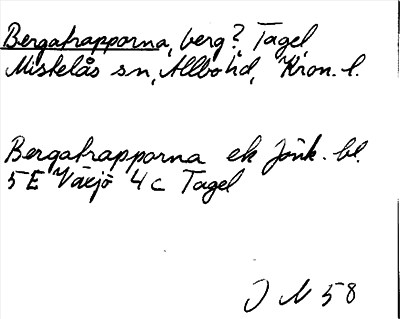 Bergatrapporna, berg? Tagel
Mistelås sn, Allbo hd, Kron. l.
Bergatrapporna ek Jönk. bl.
5 E Växjö 4 c Tagel
J N 58